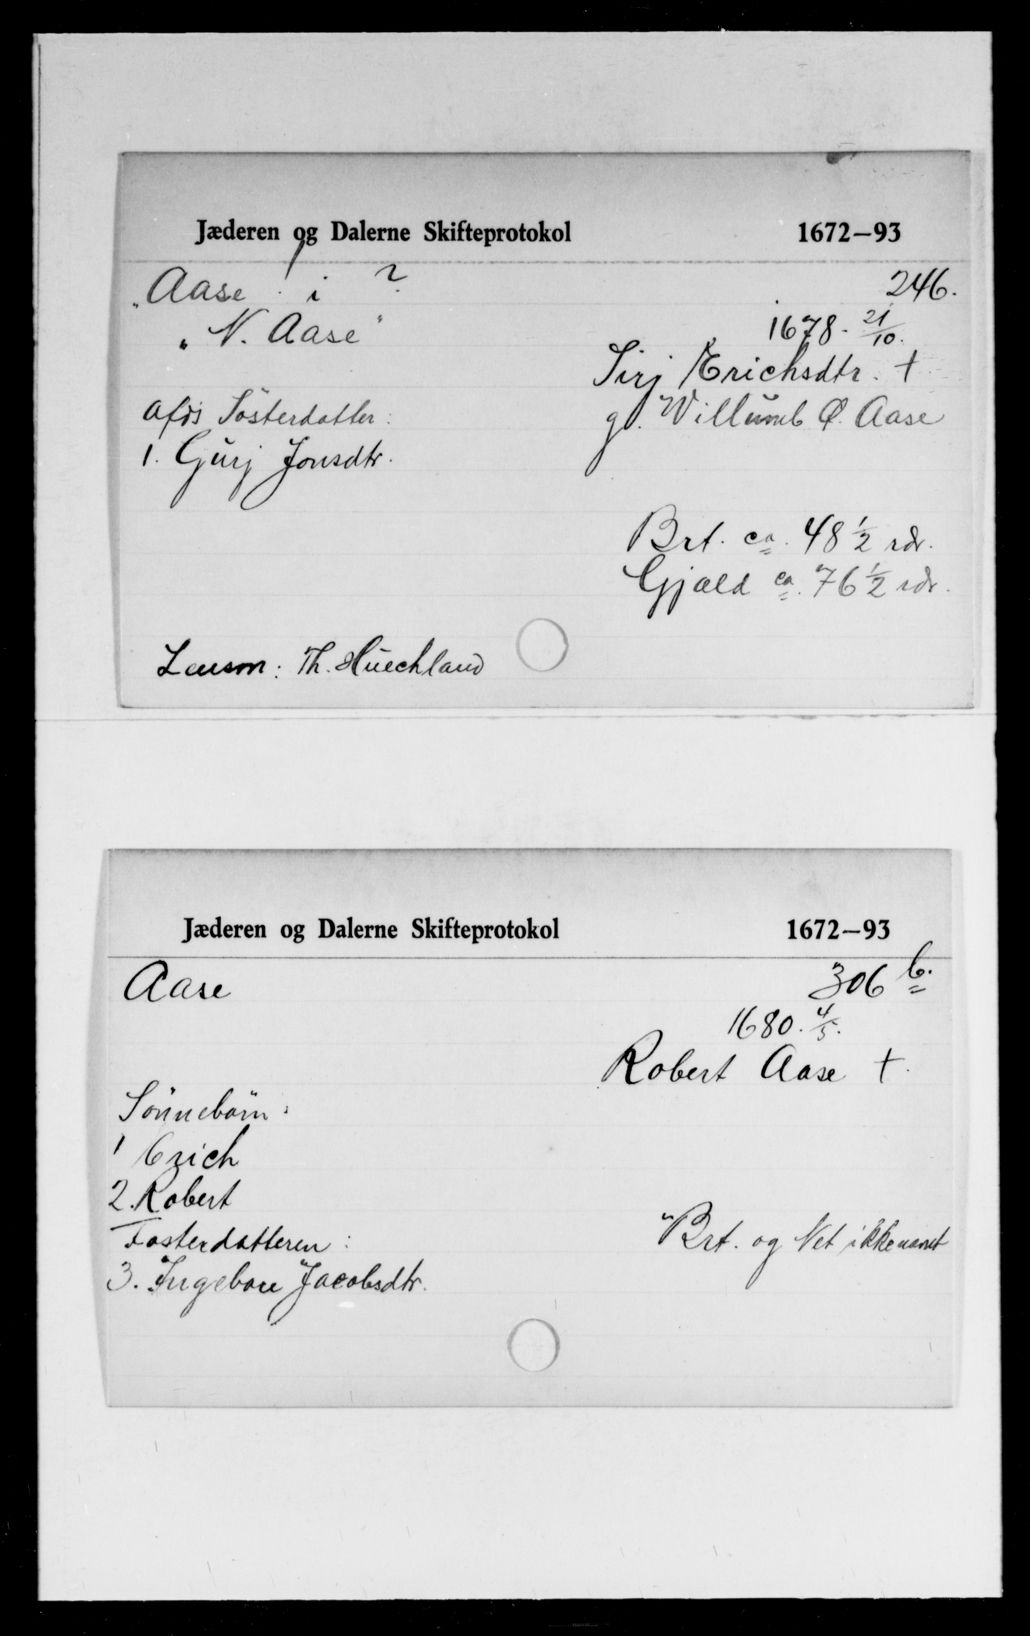 Jæderen og Dalerne Skifteprotokol 1672–93
"Aase i ? 246.
"N. Aase" 1678. 21/10.
Sirj Erichsdtr. †
afd's Søsterdatter: g. Willumb Ø. Aase
1. Gurj Jonsdtr.
Brt. ca. 48 1/2 rdr.
Gjæld ca. 76 1/2 rdr.
Lensm: Th. Huechland
Jæderen og Dalerne Skifteprotokol 1672–93
Aase 306 b.
1680. 4/5.
Robert Aase †.
Sønnebørn:
1 Erich
2. Robert
Fosterdatteren: "Brt. og Net ikke nævnt
3. Ingebore Jacobsdtr.